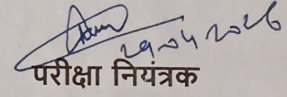 29.04.2026
परीक्षा नियंत्रक